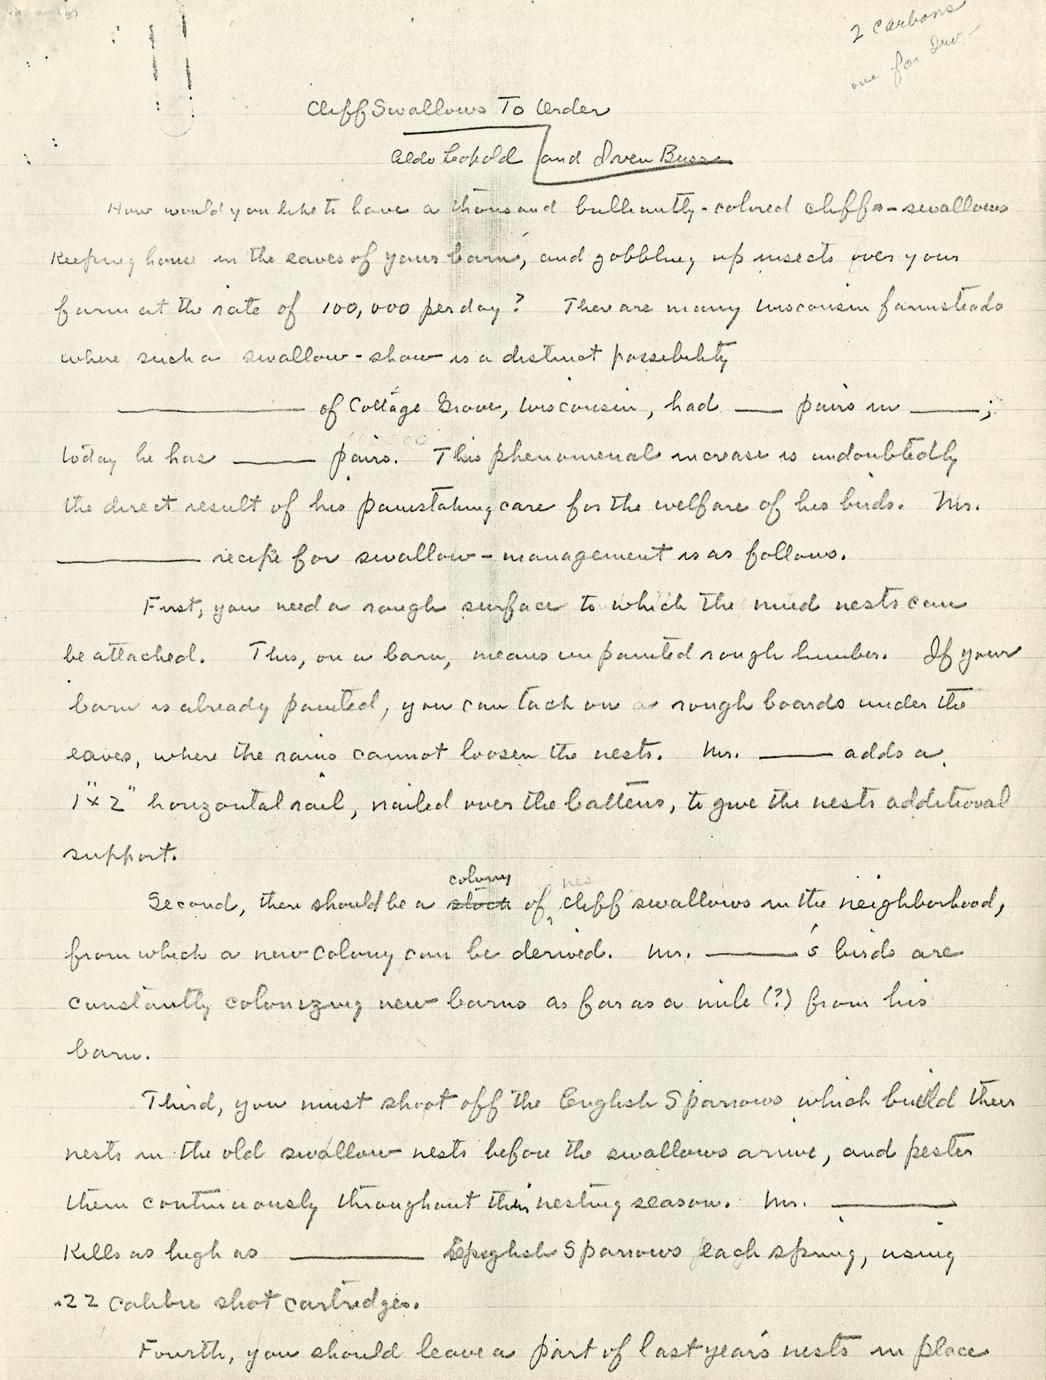 2 carbons
one for Irv.
Cliff Swallows To Order
Aldo Leopold and Irven Buss
How would you like to have a thousand brilliantly-colored cliff-swallows
keeping house in the eaves of your barn, and gobbling up insects over your
farm at the rate of 100,000 per day? There are many Wisconsin farmsteads
where such a swallow-show is a distinct possibility
_____ of Cottage Grove, Wisconsin, had ___ pairs in ____;
today he has ____ pairs. This phenomenal increase is undoubtedly
the direct result of his painstaking care for the welfare of his birds. Mr.
_____ recipe for swallow-management is as follows.
First, you need a rough surface to which the mud nests can
be attached. This, on a barn, means unpainted rough lumber. If your
barn is already painted, you can tack on rough boards under the
eaves, where the rains cannot loosen the nests. Mr. ____ adds a
1"x2" horizontal rail, nailed over the battens, to give the nests additional
support.
colony new
Second, there should be a stock of cliff swallows in the neighborhood,
from which a new colony can be derived. Mr. _____'s birds are
constantly colonizing new barns as far as a mile (?) from his
barn.
Third, you must shoot off the English Sparrows which build their
nests in the old swallow nests before the swallows arrive, and pester
them continuously throughout their nesting season. Mr. _____
kills as high as _____ English Sparrows each spring, using
.22 calibre shot cartridges.
Fourth, you should leave a part of last year's nests in place